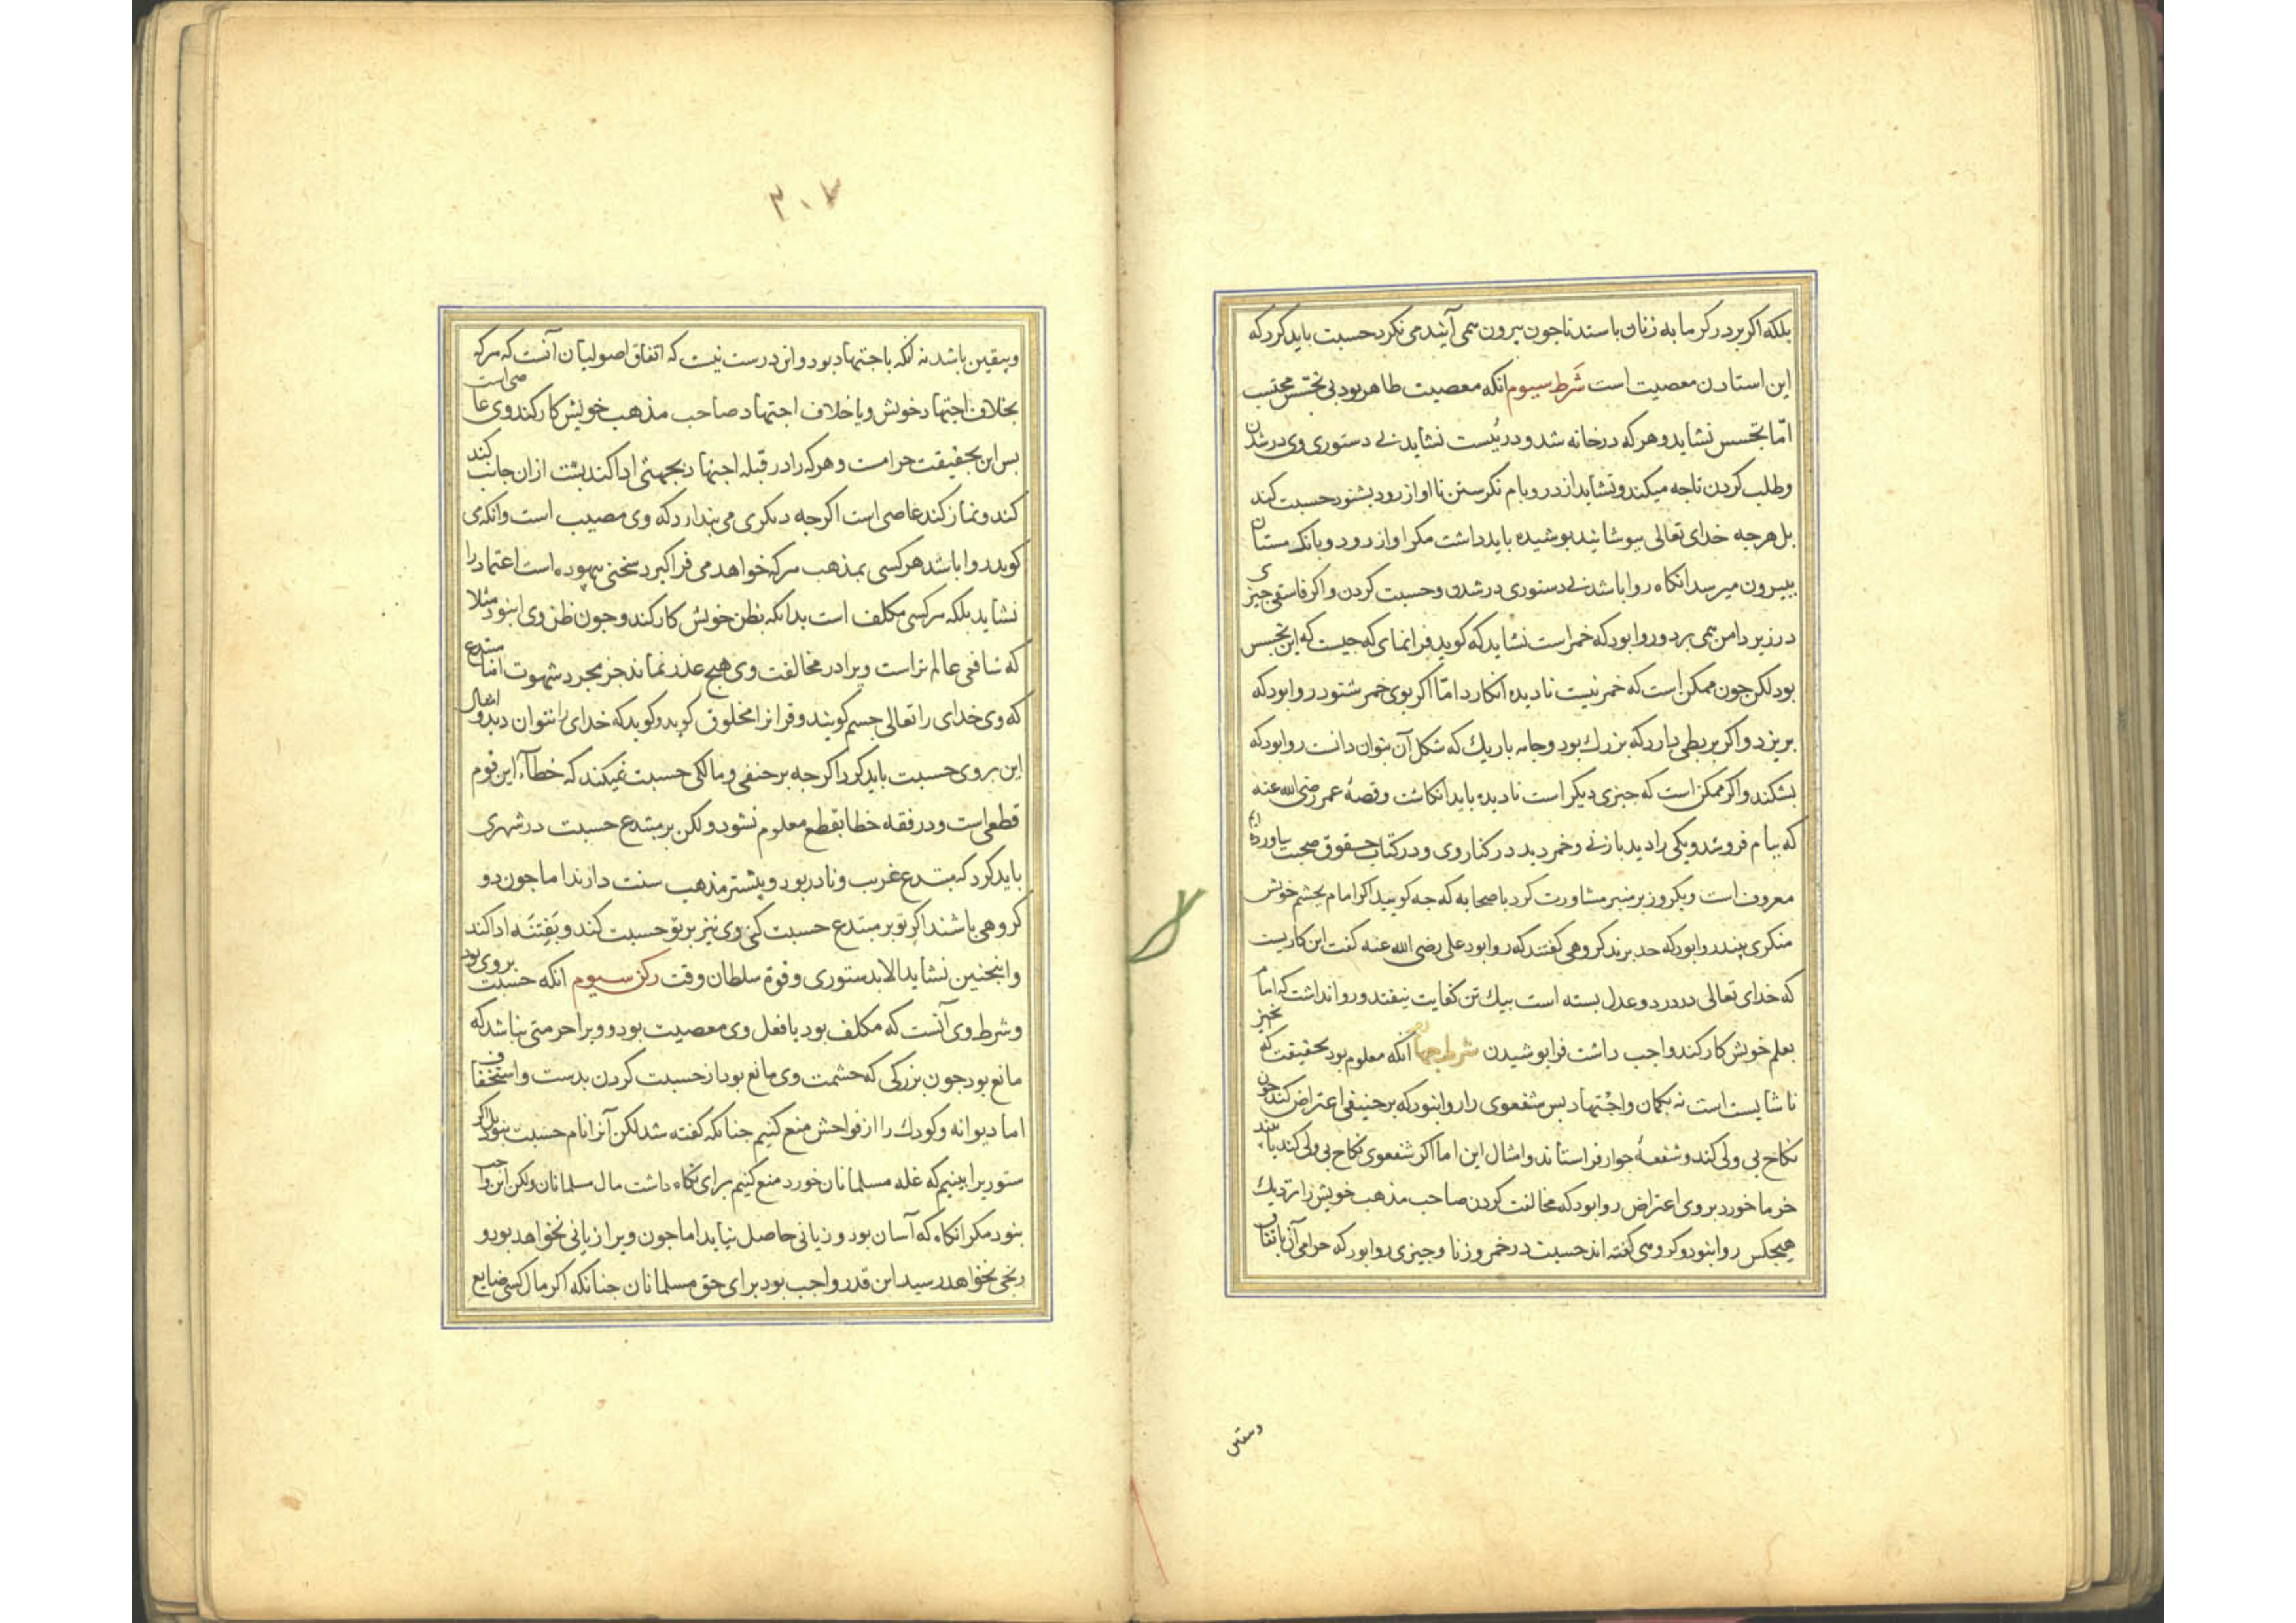 بلکه اکر بر در کرمابه زنان باستد تا جون بیرون همی آیند می نکرد حسبت باید کرد که
این استادن معصیت است شرط سیوم انکه معصیت ظاهر بود بی تجسس محتسب
اما تجسس نشاید و هر که در خانه شد و در ببست نشاید بی دستوری وی در شدن
و طلب کردن تا جه میکند و نشاید از در و بام نکرستن تا اواز رود بشنود حسبت کند
بل هر جه خدای تعالی بپوشانید بوشیده باید داشت مکر اواز رود و بانک مستان
بیرون میرسد انکاه روا باشد بی دستوری در شدن و حسبت کردن و اکر فاسقی جیزی
در زیر دامن همی برد و روا بود که خمر است نشاید که کوید فرا نمای که جیست که این تجسس
بود لکن جون ممکن است که خمر نیست نادیده انکارد اما اکر بوی خمر شنود روا بود که
بریزد و اکر بربطی دارد که بزرک بود و جامه باریک که شکل آن بتوان دانست روا بود که
بشکند و اکر ممکن است که جیزی دیکر است نادیده باید انکاشت و قصهٔ عمر رضی الله عنه
که ببام فرو شد و یکی را دید با زنی و خمر دید در کنار وی و در کتاب حقوق صحبت بیاورده ایم
معروف است و یکروز بر منبر مشاورت کرد با صحابه که جه کویید اکر امام بجشم خویش
منکری بیند روا بود که حد بزند کروهی کفتند که روا بود علی رضی الله عنه کفت این کاریست
که خدای تعالی در دو عدل بسته است بیک تن کفایت نیفتد و روا نداشت که امام
بعلم خویش کار کند و واجب داشت فرا بوشیدن شرط جهارم انکه معلوم بود بحقیقت که
ناشایست است نه بکمان و اجتهاد بس شفعوی را روا نبود که بر حنیفی اعتراض کند جون
نکاح بی ولی کند و شفعهٔ جوار فرا ستاند و امثال این اما اکر شفعوی نکاح بی ولی کند یا
خرما خورد بر وی اعتراض روا بود که مخالفت کردن صاحب مذهب خویش نزدیک
هیجکس روا نبود و کروهی کفته اند حسبت در خمر و زنا و جیزی روا بود که حرامی آن باتفاق
وبیقین
۳۰۷
وبیقین باشد نه انکه باجتهاد بود و این درست نیست که اتفاق اصولیان آنست که هر که
بخلاف اجتهاد خویش و یا خلاف اجتهاد صاحب مذهب خویش کار کند وی عاصی است
بس این بحقیقت حرامست و هر که را در قبله اجتهاد بجهتی ادا کند بشت از ان جانب کند
کند و نماز کند عاصی است اکرجه دیکری می بندارد که وی مصیب است و انکه می
کوید روا باشد هر کسی بمذهب هر که خواهد می فرا کیرد سخنی بیهوده است اعتماد را
نشاید بلکه هر کسی مکلف است بدانکه بظن خویش کار کند و جون ظن وی این بود مثلا
که شافعی عالم تر است ویرا در مخالفت وی هیج عذر نماند جز مجرد شهوت اما مبتدع
که وی خدای را تعالی جسم کویند و قرانرا مخلوق کوید و کوید که خدای را نتوان دید و امثال
این بر وی حسبت باید کرد اکرجه بر حنفی و مالکی حسبت نمیکند که خطآء این قوم
قطعی است و در فقه خطا بقطع معلوم نشود ولکن بر مبتدع حسبت در شهری
باید کرد که مبتدع غریب و نادر بود و بیشتر مذهب سنت دارند اما جون دو
کروهی باشند اکر تو بر مبتدع حسبت کنی وی نیز بر تو حسبت کند و بفتنه ادا کند
و اینجنین نشاید الا بدستوری و قوة سلطان وقت رکن سیوم انکه حسبت بروی بود
و شرط وی آنست که مکلف بود یا فعل وی معصیت بود و ویرا حرمتی نباشد که
مانع بود جون بزرکی که حشمت وی مانع بود از حسبت کردن بدست و استخفاف
اما دیوانه و کودک را از فواحش منع کنیم جنانکه کفته شد لکن آنرا نام حسبت نبود بل اکر
ستوریرا بینیم که غله مسلمانان خورد منع کنیم برای نکاه داشت مال مسلمانان ولکن این واجب
نبود مکر انکاه که آسان بود و زیانی حاصل نیاید اما جون ویرا زیانی نخواهد بود و
رنجی نخواهد رسید این قدر واجب بود برای حق مسلمانان جنانکه اکر مال کسی ضایع